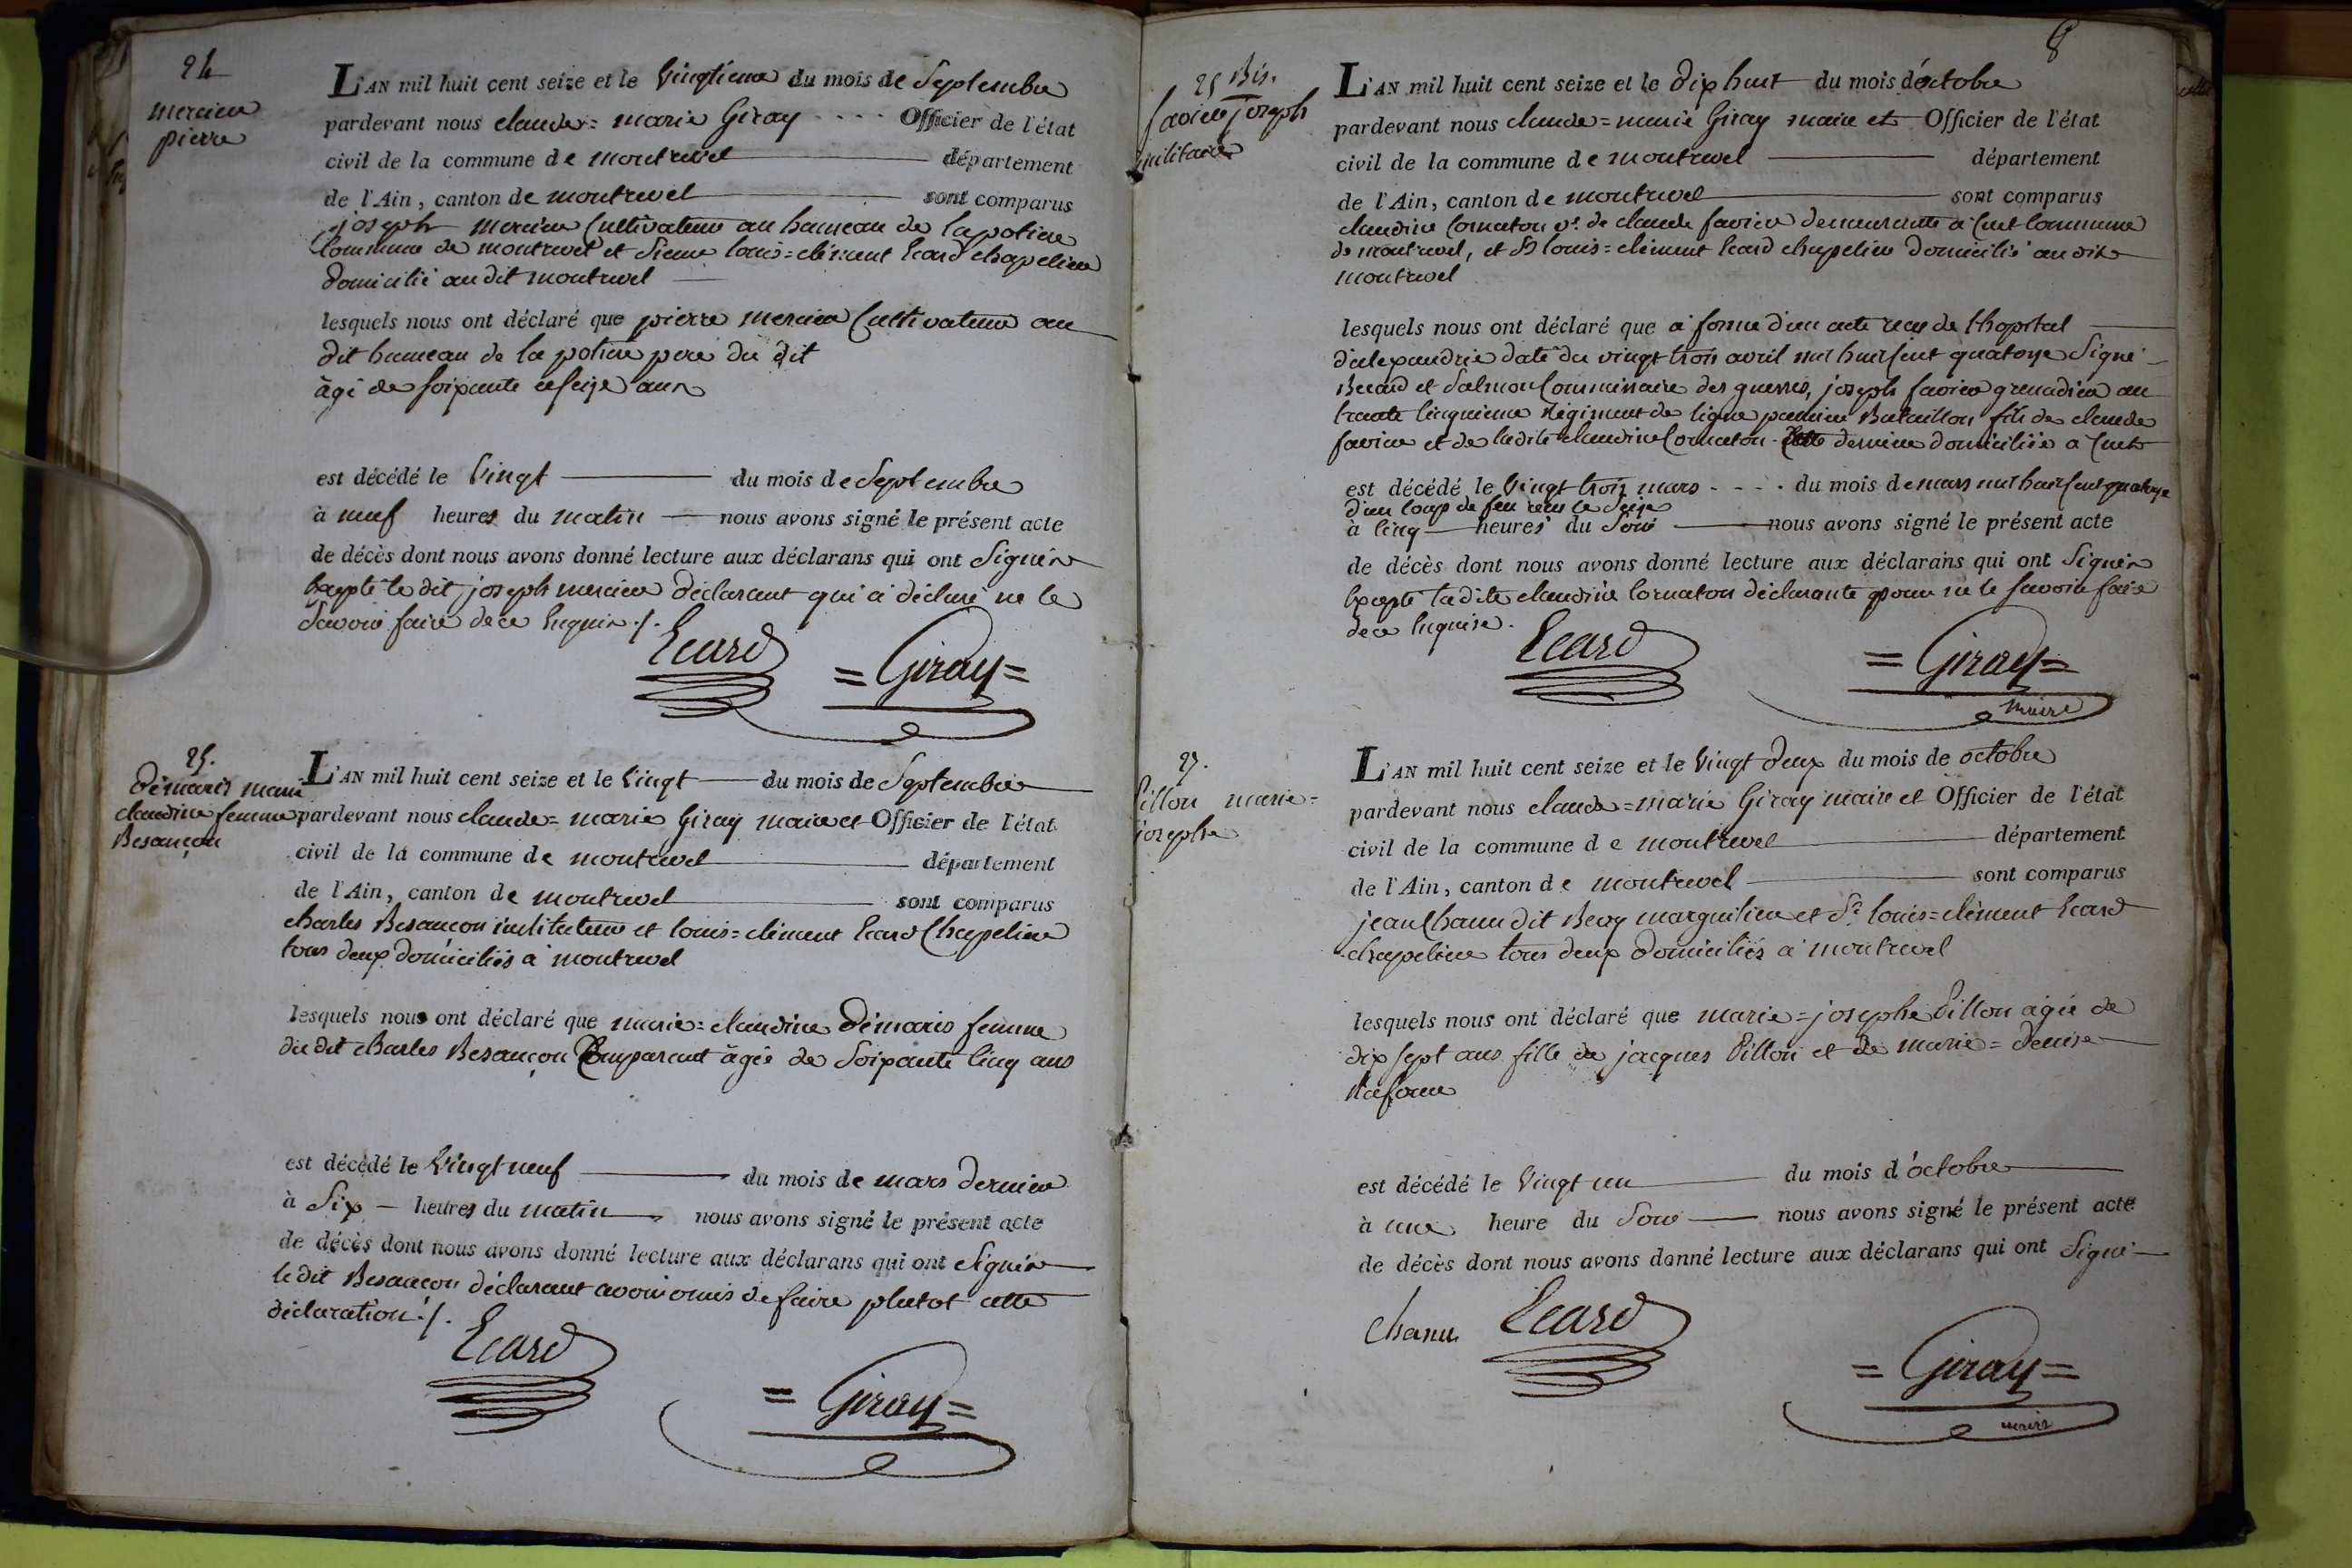 24
mercier
pierre
L'AN mil huit cent seize et le vingtieme du mois de Septembre
pardevant nous claude=marie Giray .... Officier de l'état
civil de la commune de montrevel département
de l'Ain, canton de montrevel sont comparus
joseph mercier Cultivateur au hameau de la potiere
Commune de montrevel et Sieur louis=clément Ecard chapelier
domicilié au dit montrevel
lesquels nous ont déclaré que pierre mercier Cultivateur au
dit hameau de la potiere pere du dit
âgé de soixante et seize ans
est décédé le vingt du mois de Septembre
à neuf heures du matin nous avons signé le présent acte
de décès dont nous avons donné lecture aux déclarans qui ont Signés
Excepté le dit joseph mercier déclarant qui a déclaré ne le
Savoir faire de ce Enquis ./.
Ecard
=Giray=
25.
démaris marie
claudine femme
Besançon
L'AN mil huit cent seize et le vingt du mois de Septembre
pardevant nous claude=marie Giray maire et Officier de l'état
civil de la commune de montrevel département
de l'Ain, canton de montrevel sont comparus
charles Besançon instituteur et louis=clément Ecard Chapelier
tous deux domiciliés à montrevel
lesquels nous ont déclaré que marie=claudine démaris femme
du dit charles Besançon Comparant âgée de Soixante cinq ans
est décédé le vingt neuf du mois de mars dernier
à Six heures du matin nous avons signé le présent acte
de décès dont nous avons donné lecture aux déclarans qui ont Signés
le dit Besançon déclarant avoir omis de faire plutot cette
déclaration ./.
Ecard
=Giray=
8
25 Bis.
favier joseph
militaire
L'AN mil huit cent seize et le dix huit du mois d'octobre
pardevant nous claude=marie Giray maire et Officier de l'état
civil de la commune de montrevel département
de l'Ain, canton de montrevel sont comparus
claudine Cornaton ve. de claude favier demeurante à Cuet Commune
de montrevel, et Sr louis=clément Ecard chapelier domicilié au dit
montrevel
lesquels nous ont déclaré que a forme d'un acte reçu de l'hopital
d'alexandrie daté du vingt trois avril mil huit cent quatorze Signé
Becard et Salmon Commissaire des guerres, joseph favier grenadier au
trente cinquieme Régiment de ligne premier Bataillon fils de claude
favier et de ladite claudine Cornaton cette derniere domiciliée a Cuet
est décédé le vingt trois mars .... du mois de mars mil huit cent quatorze
d'un coup de feu reçu le seize
à cinq heures du Soir nous avons signé le présent acte
de décès dont nous avons donné lecture aux déclarans qui ont Signés
Excepté ladite claudine Cornaton déclarante pour ne le savoir faire
de ce Enquise.
Ecard
=Giray=
maire
27.
Pillon marie=
josephe
L'AN mil huit cent seize et le vingt deux du mois de octobre
pardevant nous claude=marie Giray maire et Officier de l'état
civil de la commune de montrevel département
de l'Ain, canton de montrevel sont comparus
jean Chanu dit Bevy marguilier et Sr. louis=clément Ecard
chapelier tous deux domiciliés à montrevel
lesquels nous ont déclaré que marie=josephe Pillon âgée de
dix sept ans fille de jacques Pillon et de marie=denise
est décédé le vingt un du mois d'octobre
à une heure du Soir nous avons signé le présent acte
de décès dont nous avons donné lecture aux déclarans qui ont Signé
Chanu
Ecard
=Giray=
maire